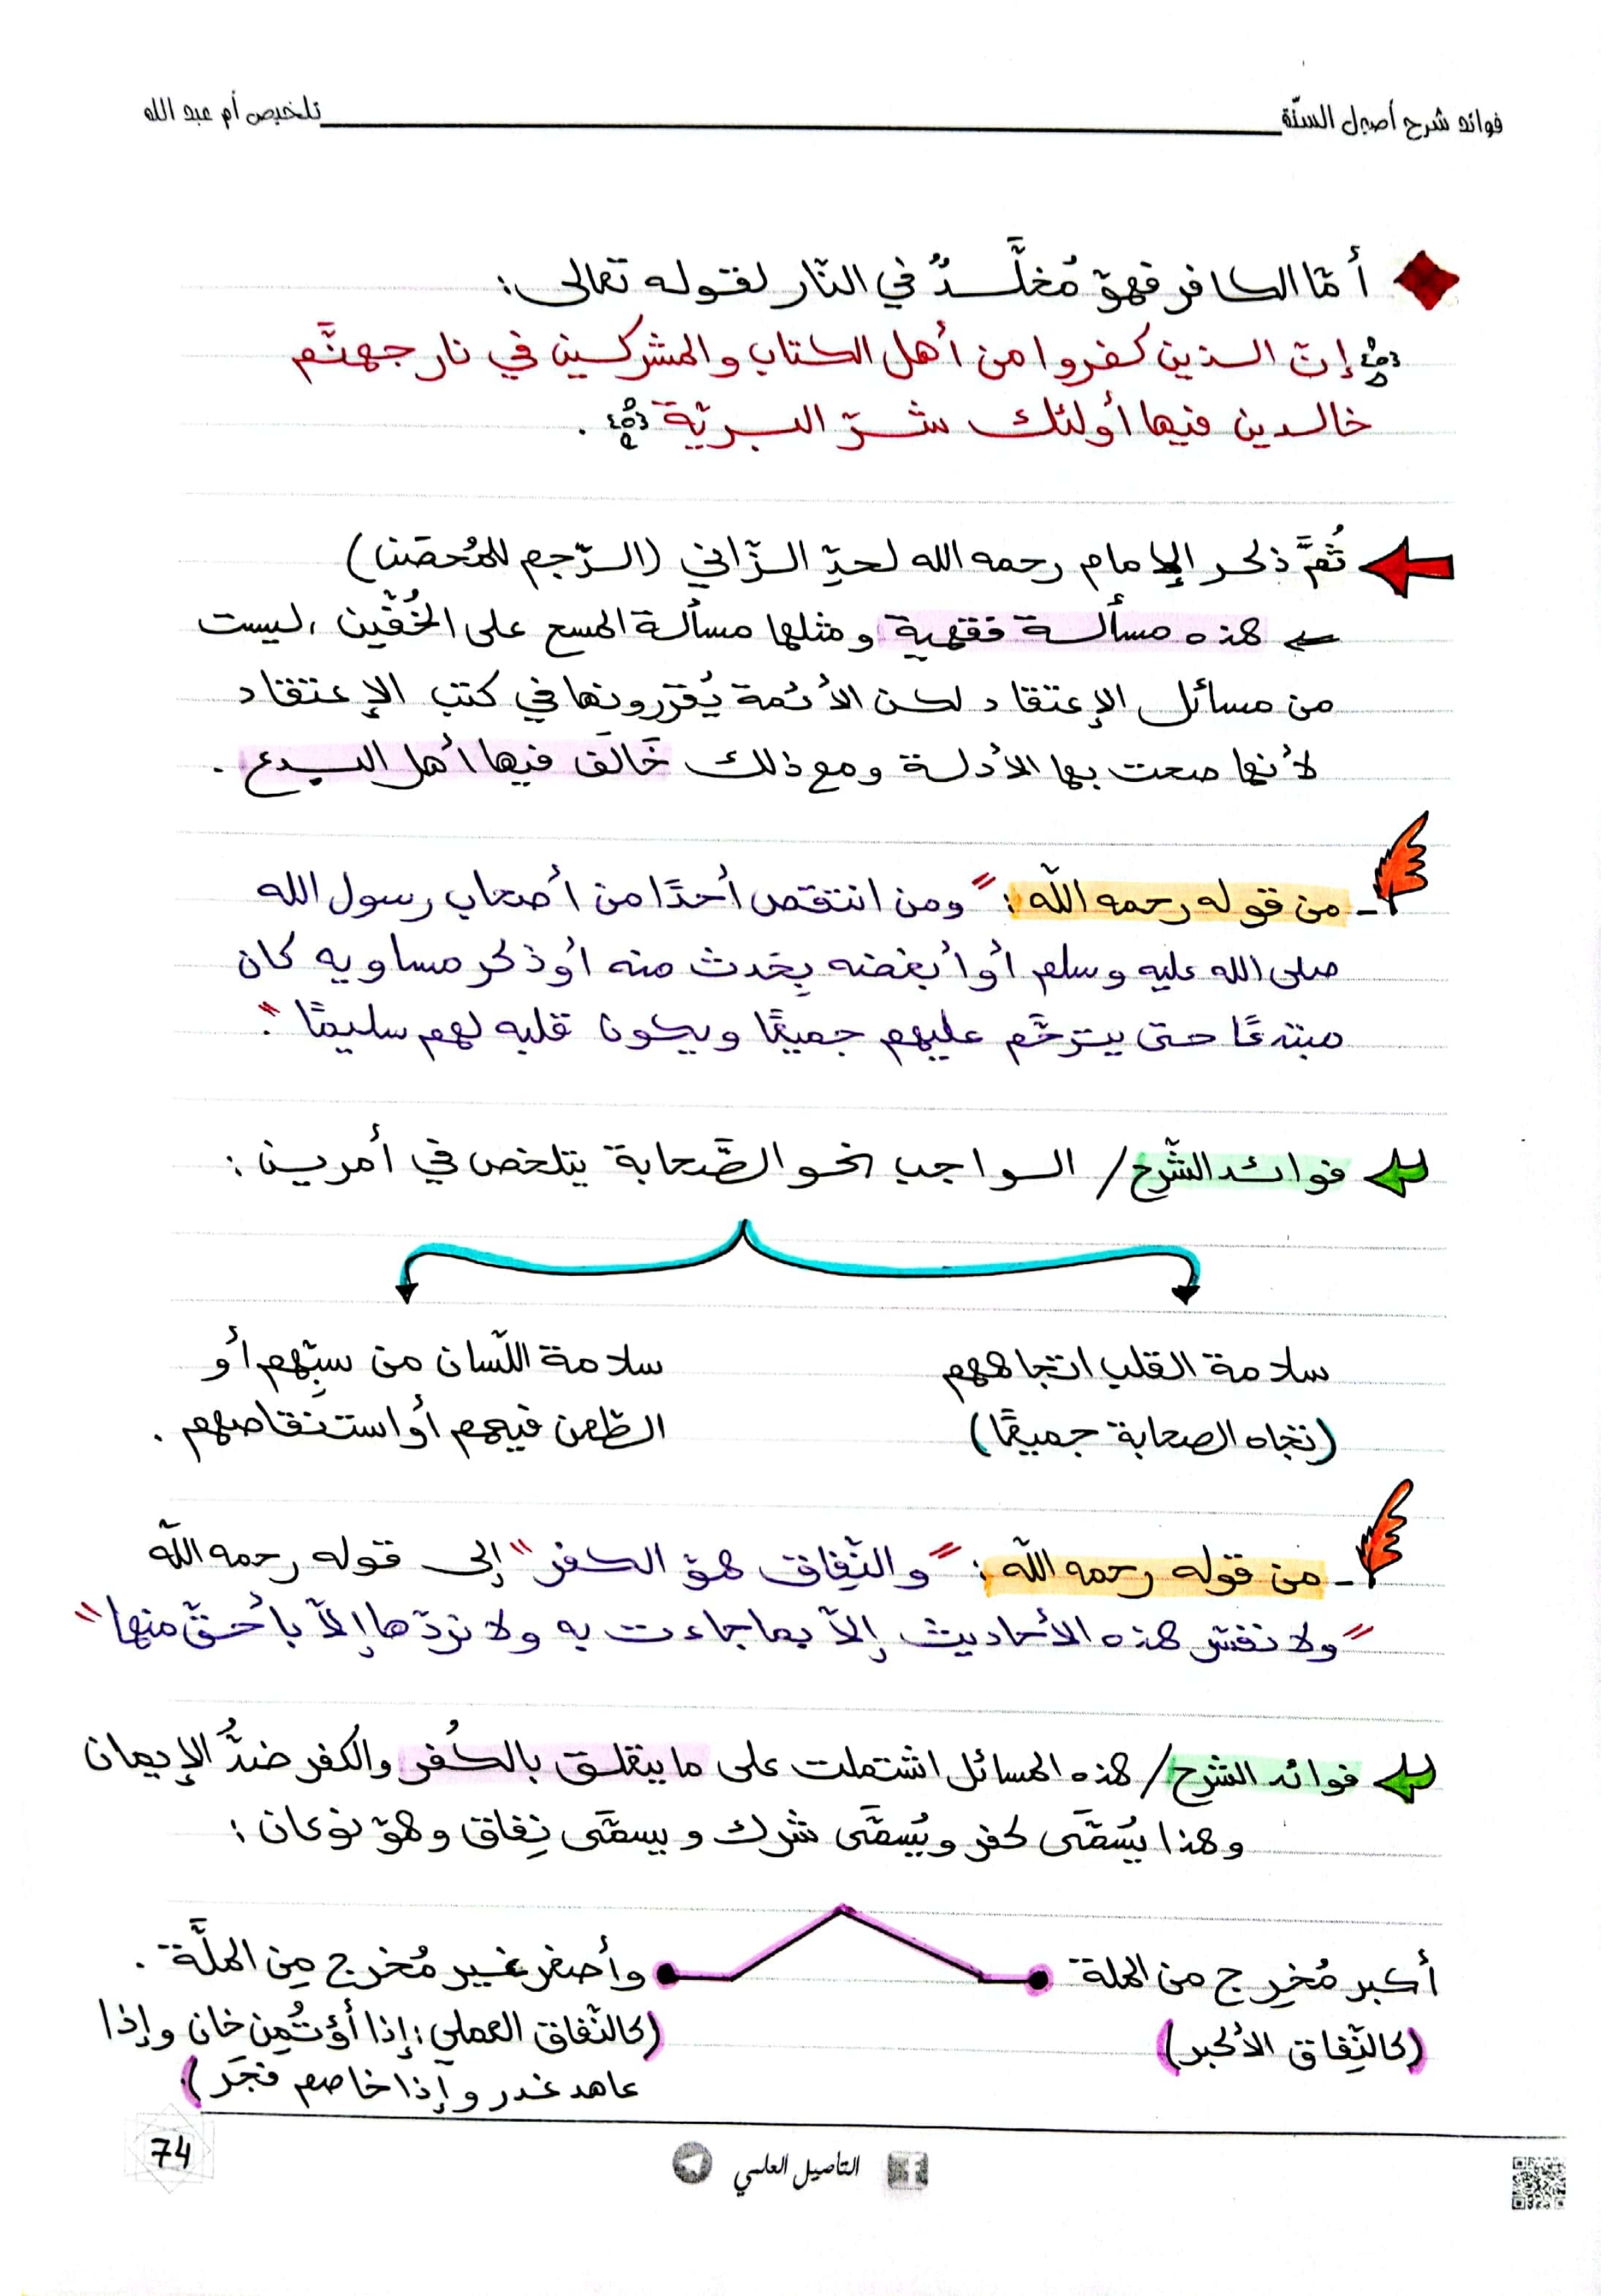 فوائد شرح أصول السنّة
تلخيص أم عبد الله
أمّا الكافر فهوَ مُخلَّدٌ في النّار لقوله تعالى:
﴿إنّ الذين كفروا من أهل الكتاب والمشركين في نار جهنَّم
خالدين فيها أولئك شرّ البريّة﴾.
ثُمَّ ذكر الإمام رحمه الله لحدِّ الزّاني (الرّجم للمُحصَن)
← هذه مسألة فقهية ومثلها مسألة المسح على الخُفّين، ليست
من مسائل الإعتقاد لكن الأئمة يُقرّرونها في كتب الإعتقاد
لأنها صحت بها الأدلة ومع ذلك خَالَف فيها أهل البدع.
ـ من قوله رحمه اللّه: "ومن انتقص أحدًا من أصحاب رسول الله
صلى الله عليه وسلم أو أبغضه بِحَدث منه أو ذكر مساويه كان
مبتدعًا حتى يترحَّم عليهم جميعًا ويكون قلبه لهم سليمًا".
فوائد الشّرح/ الواجب نحو الصَّحابة يتلخص في أمرين:
سلامة القلب اتجاههم
(تجاه الصحابة جميعًا)
سلامة اللّسان من سبِّهم أو
الطّعن فيهم أو استنقاصهم.
ـ من قوله رحمه اللّه: "والنِّفاق هوَ الكفر" إلى قوله رحمه اللّه
"ولا نفسّر هذه الأحاديث إلاّ بما جاءت به ولا نردّها إلاّ بأحقّ منها"
فوائد الشرح/ هذه المسائل اشتملت على ما يتعلق بالكُفر والكفر ضدُّ الإيمان
وهذا يُسَمَّى كفر ويُسَمَّى شرك ويسمَّى نِفاق وهوَ نوعان:
أكبر مُخرِج من الملة
(كالنِّفاق الأكبر)
وأصغر غير مُخرج مِن الملَّة.
(كالنّفاق العملي: إذا أؤتُمِن خان وإذا
عاهد غدر وإذا خاصم فجَر)
74
التأصيل العلمي